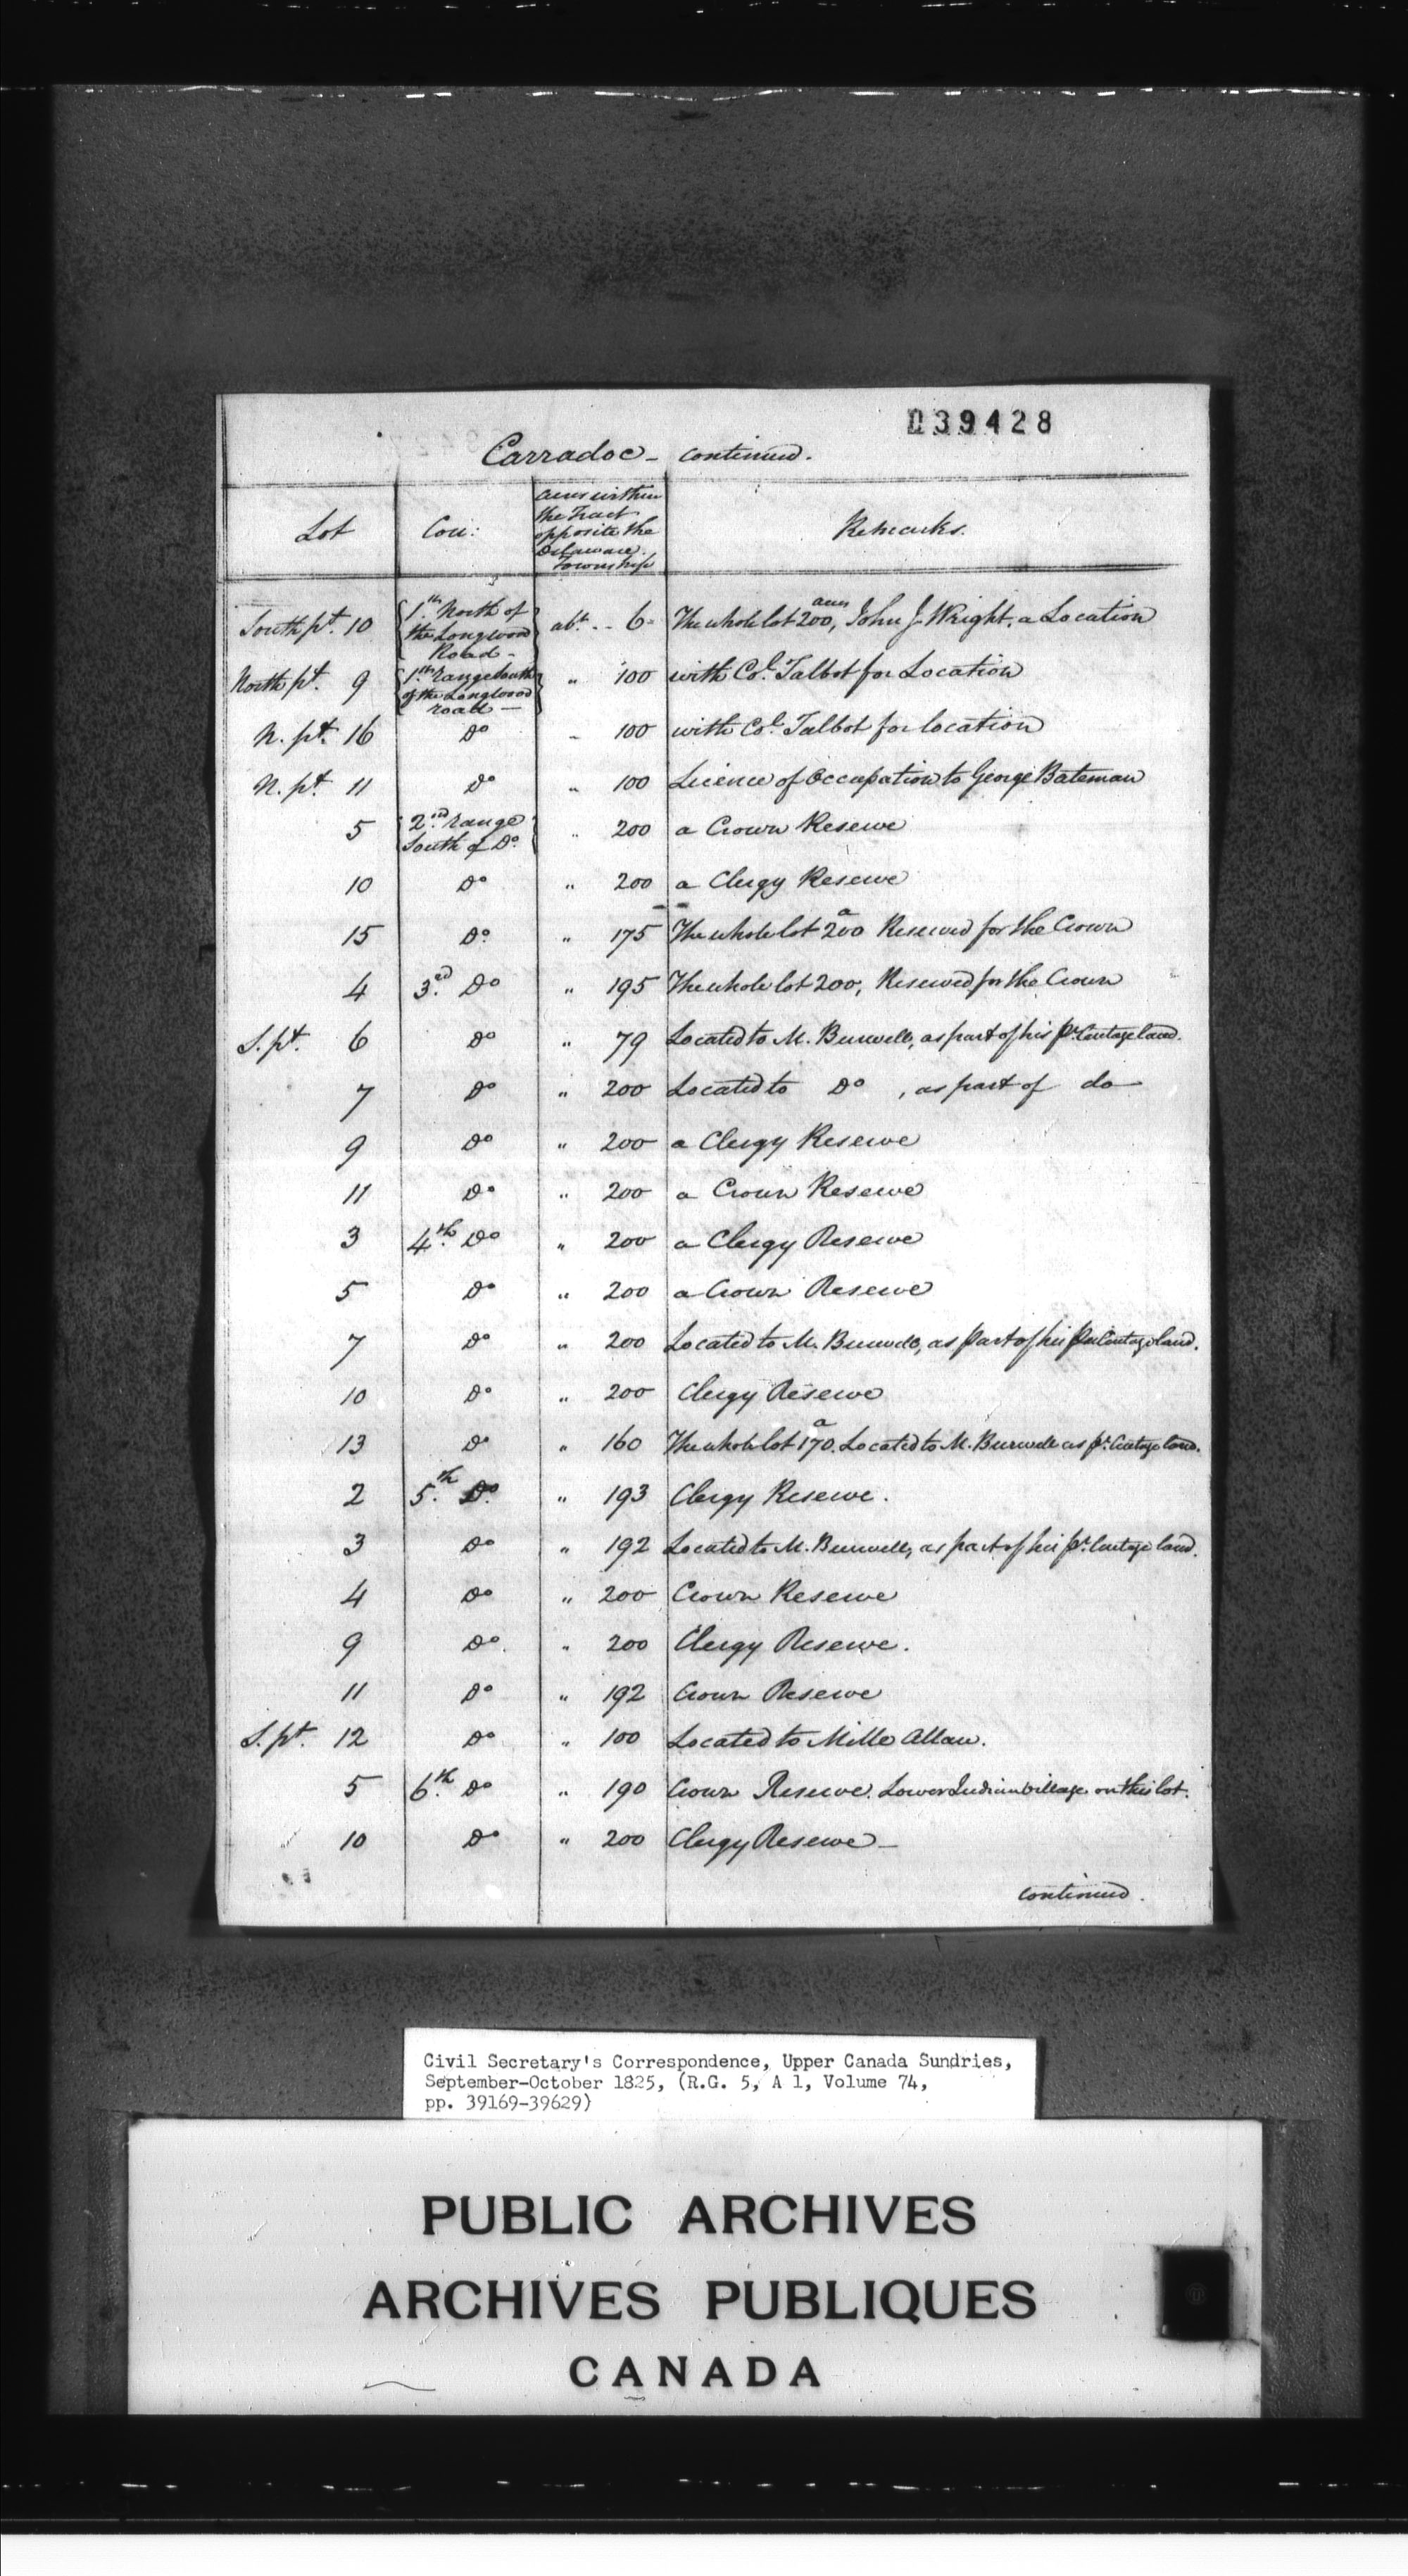 039428
Carradoc - continued.
Lot | Con: | acres within the Tract opposite the Delaware Township | Remarks.
South pt. 10 | 1th North of the Longwood Road - | abt. .. 6 | The whole lot 200 acres, John J. Wright, a Location
North pt. 9 | 1th range South of the Longwood road — | " 100 | with Col. Talbot for Location
N. pt. 16 | Do | " 100 | with Col. Talbot for location
N. pt. 11 | Do | " 100 | Licence of Occupation to George Bateman
5 | 2nd range South of Do | " 200 | a Crown Reserve
10 | Do | " 200 | a Clergy Reserve
15 | Do | " 175 | The whole lot 200 a Reserved for the Crown
4 | 3rd Do | " 195 | The whole lot 200, Reserved for the Crown
S. pt. 6 | Do | " 79 | Located to M. Burwell, as part of his pr. Centage land.
7 | Do | " 200 | Located to Do, as part of do
9 | Do | " 200 | a Clergy Reserve
11 | Do | " 200 | a Crown Reserve
3 | 4th Do | " 200 | a Clergy Reserve
5 | Do | " 200 | a Crown Reserve
7 | Do | " 200 | Located to M. Burwell, as part of his per Centage land.
10 | Do | " 200 | Clergy Reserve
13 | Do | " 160 | The whole lot 170 a. Located to M. Burwell as pr. Centage land.
2 | 5th Do | " 193 | Clergy Reserve.
3 | Do | " 192 | Located to M. Burwell, as part of his pr. Centage land.
4 | Do | " 200 | Crown Reserve
9 | Do | " 200 | Clergy Reserve.
11 | Do | " 192 | Crown Reserve
S. pt. 12 | Do | " 100 | Located to Mille Allan.
5 | 6th Do | " 190 | Crown Reserve. Lower Indian Village on this lot.
10 | Do | " 200 | Clergy Reserve -
continued.
Civil Secretary's Correspondence, Upper Canada Sundries,
September-October 1825, (R.G. 5, A 1, Volume 74,
pp. 39169-39629)
PUBLIC ARCHIVES
ARCHIVES PUBLIQUES
CANADA